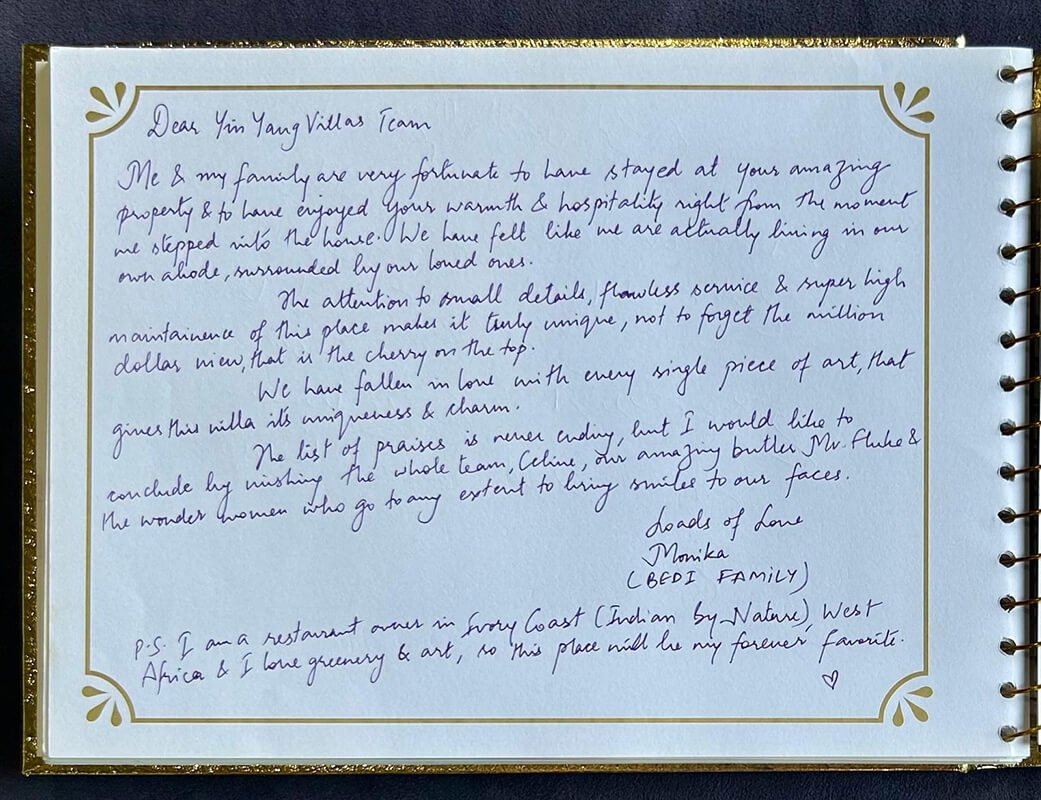 Dear Yin Yang Villas Team
Me & my family are very fortunate to have stayed at your amazing
property & to have enjoyed your warmth & hospitality right from the moment
we stepped into the house. We have felt like we are actually living in our
own abode, surrounded by our loved ones.
The attention to small details, flawless service & super high
maintainence of this place makes it truly unique, not to forget the million
dollar view, that is the cherry on the top.
We have fallen in love with every single piece of art, that
gives this villa it's uniqueness & charm.
The list of praises is never ending, but I would like to
conclude by wishing the whole team, Celine, our amazing butler Mr. Fluke &
the wonder women who go to any extent to bring smiles to our faces.
Loads of Love
Monika
(BEDI FAMILY)
P.S. I am a restaurant owner in Ivory Coast (Indian by Nature), West
Africa & I love greenery & art, so this place will be my forever favorite.
♡